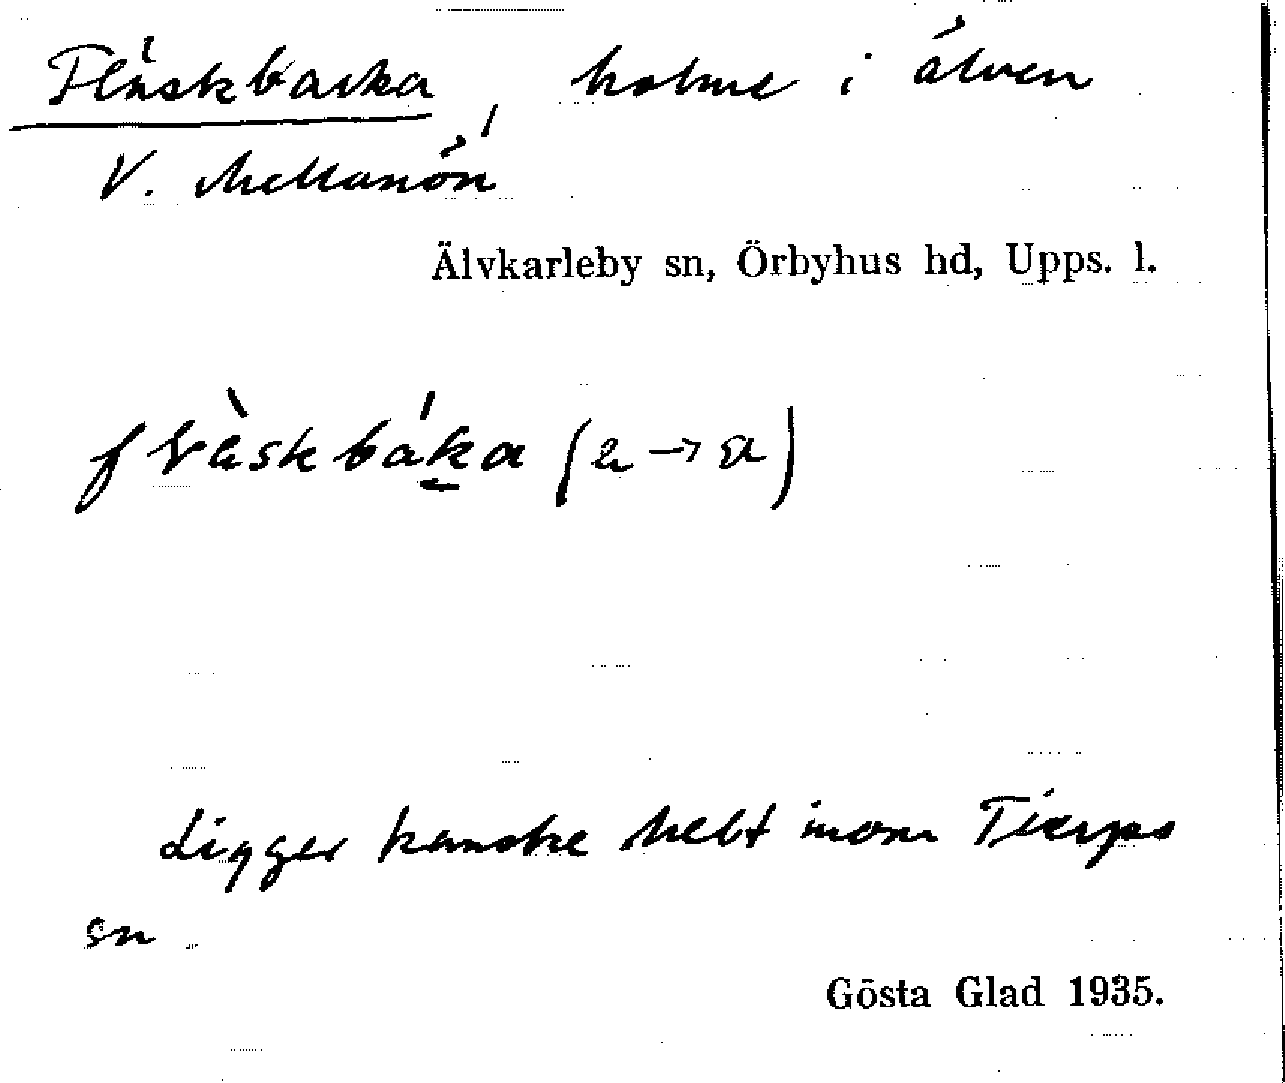 Fläskbacka, holme i älven
V. Mellanön
Älvkarleby sn, Örbyhus hd, Upps. l.
flàskbáka (a → a)
Ligger kanske helt inom Tierps
sn
Gösta Glad 1935.